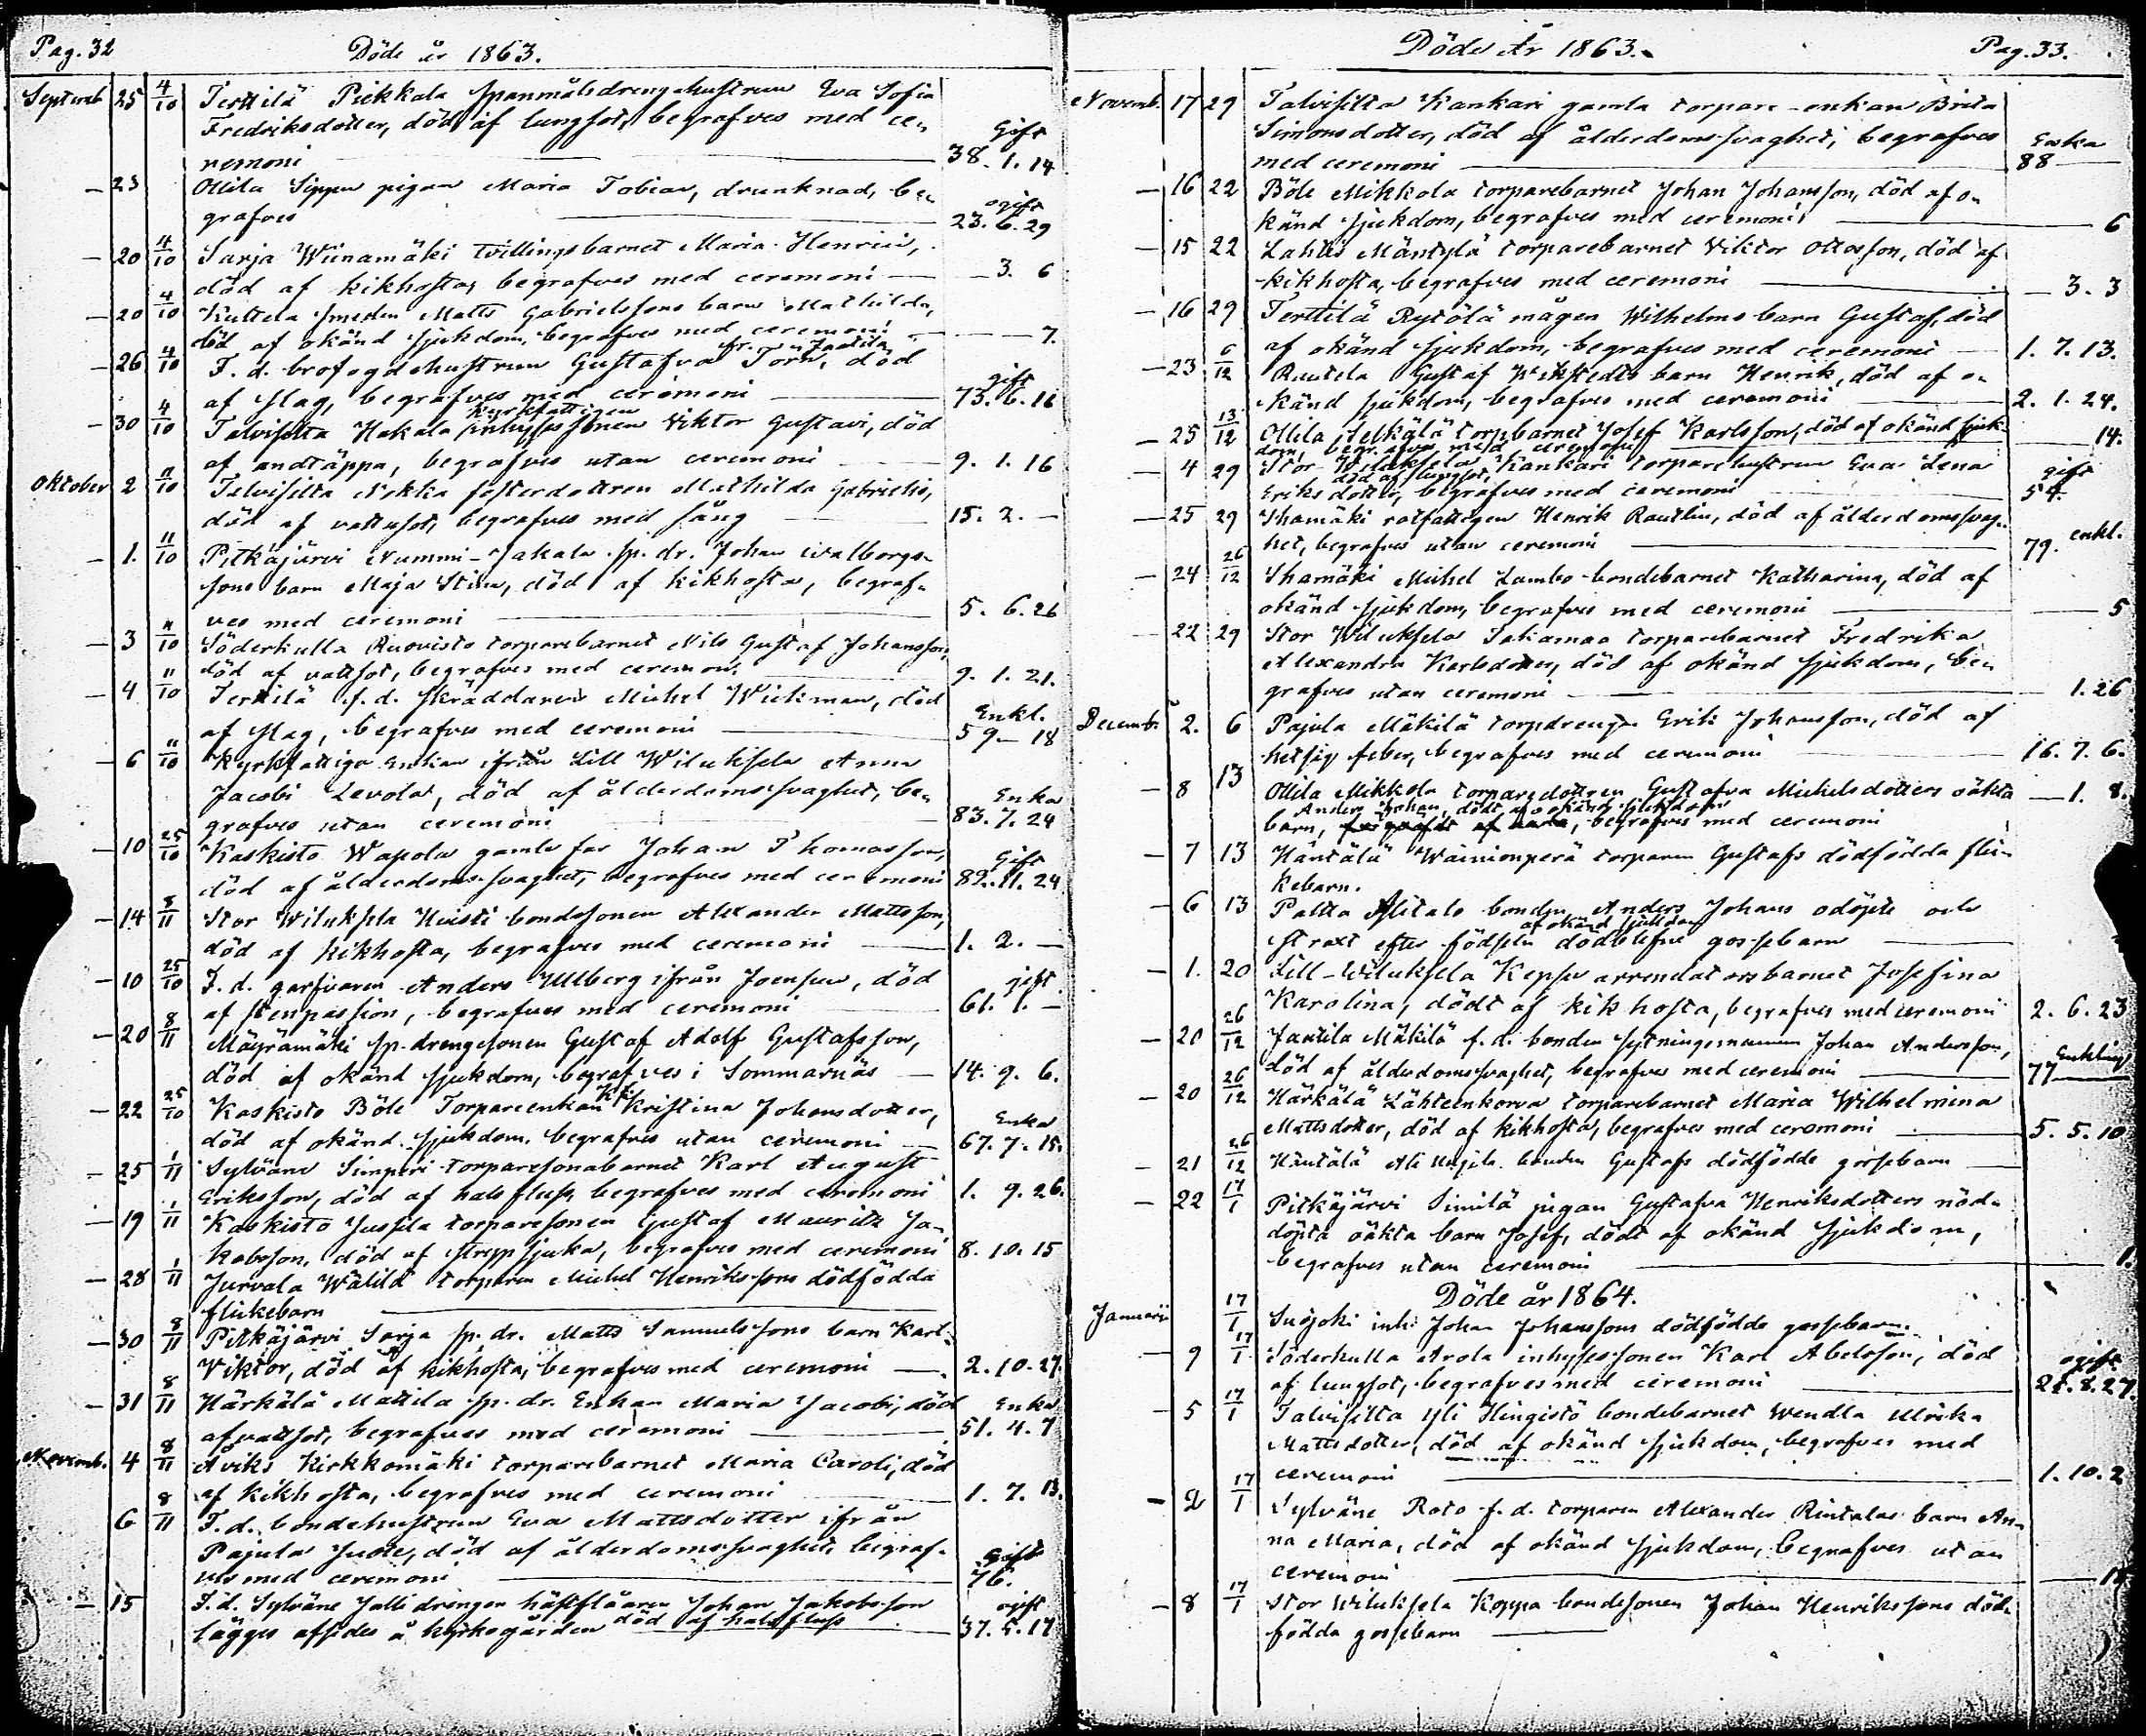 Pag. 32
Döde år 1863.
Septemb 25 4/10 Terttilä Piekkala spanmålsdrengshustrun Eva Sofia
Fredriksdotter, död af lungsot, begrafves med ce-
Gift
remoni 38. 1. 14
— 23 Ollila Sippu pigan Maria Tobiae, drunknad, be-
ogift
grafves 23. 6. 29
— 20 4/10 Sarja Wiinamäki tvillingsbarnet Maria Henrici,
död af kikhosta, begrafves med ceremoni — 3. 6
— 20 4/10 Kuttela smeden Matts Gabrielssons barn Mathilda,
död af okänd sjukdom, begrafves med ceremoni — 7.
fr. Jautila
— 26 4/10 F. d. brofogdehustrun Gustafva Törn, död
gift
af slag, begrafves med ceremoni 73. 6. 16
kyrkfattigen
— 30 4/10 Talvisilta Hakala inhysessonen Viktor Gustavi, död
af andtäppa, begrafves utan ceremoni 9. 1. 16
Oktober 2 11/10 Talvisilta Nokka fosterdottren Mathilda Gabrielis,
död af vattusot, begrafves med sång 15. 2. —
— 1. 11/10 Pitkäjärvi Nummi-Jakala sp. dr. Johan Walborgs-
sons barn Maja Stina, död af kikhosta, begraf-
ves med ceremoni 5. 6. 26
— 3 11/10 Söderkulla Ruovisto torparebarnet Nils Gustaf Johansson,
död af vattsot, begrafves med ceremoni 9. 1. 21.
— 4 11/10 Terttilä f. d. skräddaren Michel Wickman, död
Enkl.
af slag, begrafves med ceremoni 59 — 18
— 6 11/10 Kyrkfattiga enkan ifrån Lill Wiluksela Anna
Jacobi Levola, död af ålderdomssvaghet, be-
Enka
grafves utan ceremoni 83. 7. 24
— 10 25/10 Kaskisto Wapola gamle far Johan Thomasson,
Gift
död af ålderdomssvaghet, begrafves med ceremoni 89. 11. 24
— 14 8/11 Stor Wiluksela Huisti bondesonen Alexander Mattsson,
död af kikhosta, begrafves med ceremoni 1. 2. —
— 10 25/10 F. d. garfvaren Anders Ullberg ifrån Joensuu, död
gift
af stenpassion, begrafves med ceremoni 61. 1. —
— 20 8/11 Mäyrämäki sp. drengesonen Gustaf Adolf Gustafsson,
död af okänd sjukdom, begrafves i Sommarnäs — 14. 9. 6.
Kf.
— 22 25/10 Kaskisto Böle Torpareenkan Kristina Johansdotter,
Enka
död af okänd sjukdom, begrafves utan ceremoni — 67. 7. 15.
— 25 1/11 Sylväne Simperi torparesonabarnet Karl August
Eriksson, död af halsfluss, begrafves med ceremoni 1. 9. 26.
— 19 1/11 Kaskisto Jussila torparesonen Gustaf Mauritz Ja-
kobsson, död af strypsjuka, begrafves med ceremoni 8. 10. 15
— 28 1/11 Jurvala Wälilä torparen Michel Henrikssons dödfödda
flickebarn
— 30 8/11 Pitkäjärvi Sarja sp. dr. Matts Samuelssons barn Karl
Wiktor, död af kikhosta, begrafves med ceremoni — 2. 10. 27.
— 31 8/11 Härkälä Mattila sp. dr. Enkan Maria Jacobi, död
Enka
af vattsot, begrafves med ceremoni 51. 4. 7
Novemb. 4 8/11 Åviks Kirkkomäki torparebarnet Maria Caroli, död
af kikhosta, begrafves med ceremoni 1. 7. 13.
6 8/11 F. d. bondehustrun Eva Mattsdotter ifrån
Pajula Juole, död af ålderdomssvaghet, begraf-
gift
ves med ceremoni 76.
— 15 F. d. Sylväne Jalli drengen hästflåaren Johan Jakobsson
ogift
lägges afsides å kyrkogården död af halsfluss 37. 5. 17
Döde År 1863.
Pag. 33.
Novemb. 17 29 Talvisilta Kankari gamla torpare-enkan Brita
Simonsdotter, död af ålderdomssvaghet, begrafves
Enka
med ceremoni 88 —
— 16 22 Böle Mikkola torparebarnet Johan Johansson, död af o-
känd sjukdom, begrafves med ceremoni 6
— 15 22 Lahtis Mäntylä torparebarnet Viktor Ottosson, död af
kikhosta, begrafves med ceremoni — 3. 3
— 16 29 Terttilä Rytölä mågen Wilhelms barn Gustaf, död
af okänd sjukdom, begrafves med ceremoni 1. 7. 13.
— 23 6/12 Rautela Gustaf Wikstedts barn Henrik, död af o-
känd sjukdom, begrafves med ceremoni 2. 1. 24.
— 25 13/12 Ollila Selkälä torpbarnet Josef Karlsson, död af okänd sjuk-
dom, begrafves med ceremoni 14.
— 4 29 Stor-Wiluksela Kankari torparehustrun Eva Lena
död af lungsot,
gift
Eriksdotter, begrafves med ceremoni 54.
— 25 29 Ihamäki rotfattigen Henrik Rautlin, död af ålderdomssvag-
enkl.
het, begrafves utan ceremoni 79.
— 24 26/12 Ihamäki Michel Lambo bondebarnet Katharina, död af
okänd sjukdom, begrafves med ceremoni 5
— 22 29 Stor Wiluksela Takamaa torparebarnet Fredrika
Alexandra Karlsdotter, död af okänd sjukdom, be-
grafves utan ceremoni 1. 26
Decemb. 2. 6 Pajula Mäkilä torpdrengen Erik Johansson, död af
hetsig feber, begrafves med ceremoni 16. 7. 6.
— 8 13 Ollila Mikkola torparedottren Gustafva Michelsdotters oäkta — 1. 8.
Anders Johan, dödt af okänd sjukdom
barn, begrafves med ceremoni
— 7 13 Häntälä Wäinionperä torparen Gustafs dödfödda flic-
kebarn.
— 6 13 Paltta Alitalo bonden Anders Johans odöpte och
af okänd sjukdom
strax efter födseln dödblefne gossebarn
— 1. 20 Lill-Wiluksela Keppu arrendatorsbarnet Josefina
Karolina, dödt af kikhosta, begrafves med ceremoni 2. 6. 23
— 20 26/12 Jautila Mäkilä f. d. bonden sytningsmannen Johan Andersson,
Enkling
död af ålderdomssvaghet, begrafves med ceremoni 77 —
— 20 26/12 Härkälä Lähteenkorva torparebarnet Maria Wilhelmina
Mattsdotter, död af kikhosta, begrafves med ceremoni 5. 5. 10
— 21 26/12 Häntälä Ali bonden Gustafs dödfödde gossebarn
— 22 17/1 Pitkäjärvi Similä pigan Gustafva Henriksdotters nöd-
döpta oäkta barn Josef, dödt af okänd sjukdom,
begrafves utan ceremoni 1.
Döde år 1864.
Januarii 17/1 Suojoki inh: Johan Johanssons dödfödde gossebarn.
— 9 17/1 Söderkulla Arola inhysessonen Karl Abelsson, död
ogift
af lungsot, begrafves med ceremoni 21. 8. 27.
— 5 17/1 Talvisilta Yli Hingistö bondebarnet Wendla Ulrika
Mattsdotter, död af okänd sjukdom, begrafves med
ceremoni 1. 10. 2
— 2 17/1 Sylväne Roto f. d. torparen Alexander Rintalas barn An-
na Maria, död af okänd sjukdom, begrafves utan
ceremoni
— 8 17/1 Stor Wiluksela Koppa bondesonen Johan Henrikssons död-
födda gossebarn